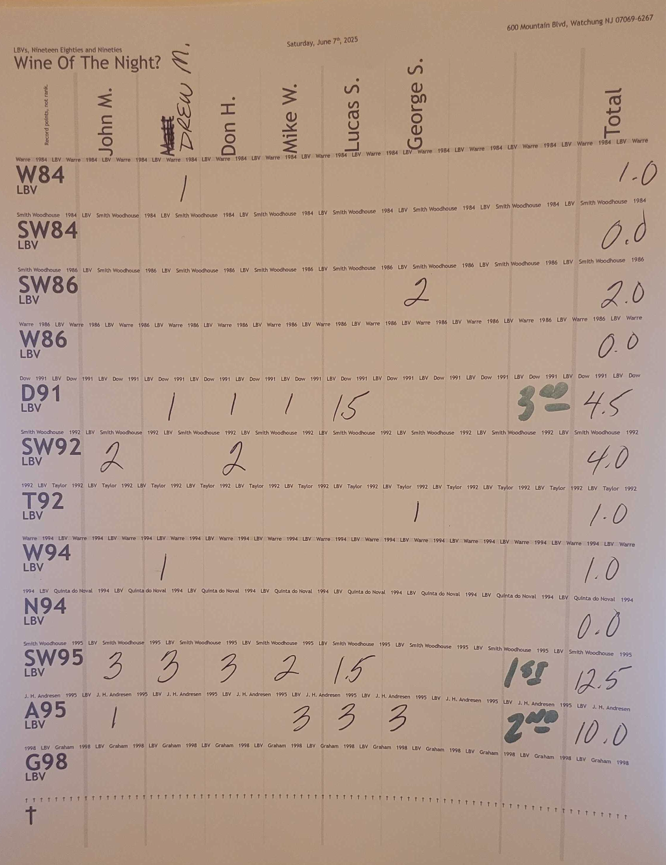 600 Mountain Blvd, Watchung NJ 07069-6267
Saturday, June 7th, 2025
LBVs, Nineteen Eighties and Nineties
Wine Of The Night?
Record points, not rank.
John M. DREW M. Don H. Mike W. Lucas S. George S. Total
Warre 1984 LBV Warre 1984 LBV Warre 1984 LBV Warre 1984 LBV Warre 1984 LBV Warre 1984 LBV Warre 1984 LBV Warre 1984 LBV Warre 1984 LBV Warre
W84 1 1.0
LBV
Smith Woodhouse 1984 LBV Smith Woodhouse 1984 LBV Smith Woodhouse 1984 LBV Smith Woodhouse 1984 LBV Smith Woodhouse 1984 LBV Smith Woodhouse 1984 LBV Smith Woodhouse 1984
SW84 0.0
LBV
Smith Woodhouse 1986 LBV Smith Woodhouse 1986 LBV Smith Woodhouse 1986 LBV Smith Woodhouse 1986 LBV Smith Woodhouse 1986 LBV Smith Woodhouse 1986 LBV Smith Woodhouse 1986
SW86 2 2.0
LBV
Warre 1986 LBV Warre 1986 LBV Warre 1986 LBV Warre 1986 LBV Warre 1986 LBV Warre 1986 LBV Warre 1986 LBV Warre 1986 LBV Warre 1986 LBV Warre
W86 0.0
LBV
Dow 1991 LBV Dow 1991 LBV Dow 1991 LBV Dow 1991 LBV Dow 1991 LBV Dow 1991 LBV Dow 1991 LBV Dow 1991 LBV Dow 1991 LBV Dow 1991 LBV Dow
D91 1 1 1 1.5 3RD 4.5
LBV
Smith Woodhouse 1992 LBV Smith Woodhouse 1992 LBV Smith Woodhouse 1992 LBV Smith Woodhouse 1992 LBV Smith Woodhouse 1992 LBV Smith Woodhouse 1992 LBV Smith Woodhouse 1992
SW92 2 2 4.0
LBV
1992 LBV Taylor 1992 LBV Taylor 1992 LBV Taylor 1992 LBV Taylor 1992 LBV Taylor 1992 LBV Taylor 1992 LBV Taylor 1992 LBV Taylor 1992 LBV Taylor 1992
T92 1 1.0
LBV
Warre 1994 LBV Warre 1994 LBV Warre 1994 LBV Warre 1994 LBV Warre 1994 LBV Warre 1994 LBV Warre 1994 LBV Warre 1994 LBV Warre 1994 LBV Warre
W94 1 1.0
LBV
1994 LBV Quinta do Noval 1994 LBV Quinta do Noval 1994 LBV Quinta do Noval 1994 LBV Quinta do Noval 1994 LBV Quinta do Noval 1994 LBV Quinta do Noval 1994 LBV Quinta do Noval 1994
N94 0.0
LBV
Smith Woodhouse 1995 LBV Smith Woodhouse 1995 LBV Smith Woodhouse 1995 LBV Smith Woodhouse 1995 LBV Smith Woodhouse 1995 LBV Smith Woodhouse 1995 LBV Smith Woodhouse 1995
SW95 3 3 3 2 1.5 1ST 12.5
LBV
J. H. Andresen 1995 LBV J. H. Andresen 1995 LBV J. H. Andresen 1995 LBV J. H. Andresen 1995 LBV J. H. Andresen 1995 LBV J. H. Andresen 1995 LBV J. H. Andresen 1995 LBV J. H. Andresen
A95 1 3 3 3 2ND 10.0
LBV
1998 LBV Graham 1998 LBV Graham 1998 LBV Graham 1998 LBV Graham 1998 LBV Graham 1998 LBV Graham 1998 LBV Graham 1998 LBV Graham 1998 LBV Graham 1998
G98
LBV
†